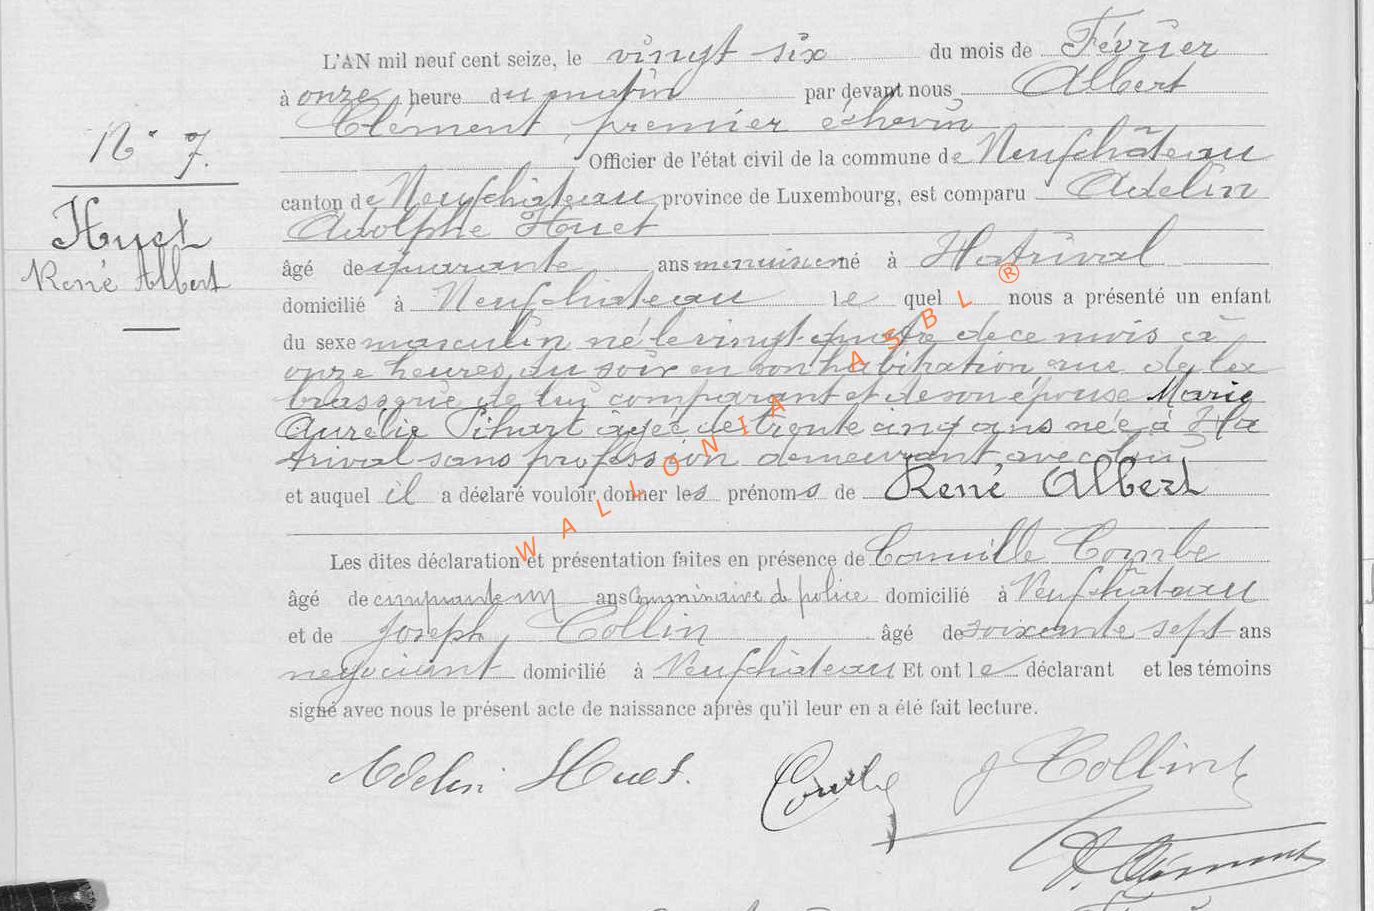 L'AN mil neuf cent seize, le vingt six du mois de Février
à onze heure du matin par devant nous, Albert
Clément, premier échevin
Officier de l'état civil de la commune de Neufchâteau
N° 7.
canton de Neufchâteau province de Luxembourg, est comparu Adelin
Huet
Adolphe Huet
René Albert
âgé de quarante ans menuisier né à Hatrival
domicilié à Neufchateau le quel nous a présenté un enfant
du sexe masculin né le vingt quatre de ce mois à
onze heures du soir en son habitation rue de la
brasserie de lui comparant et de son épouse Marie
Aurélie Pihart agée de trente cinq ans née à Ha
trival sans profession demeurant avec lui
et auquel il a déclaré vouloir donner les prénoms de René Albert
Les dites déclaration et présentation faites en présence de Camille Combe
âgé de cinquante un ans commissaire de police domicilié à Neufchâteau
et de Joseph Collin âgé de soixante sept ans
negociant domicilié à Neufchâteau Et ont le déclarant et les témoins
signé avec nous le présent acte de naissance après qu'il leur en a été fait lecture.
Adelin Huet. Combe J Collin
A. Clément
WALLONIA ASBL ®